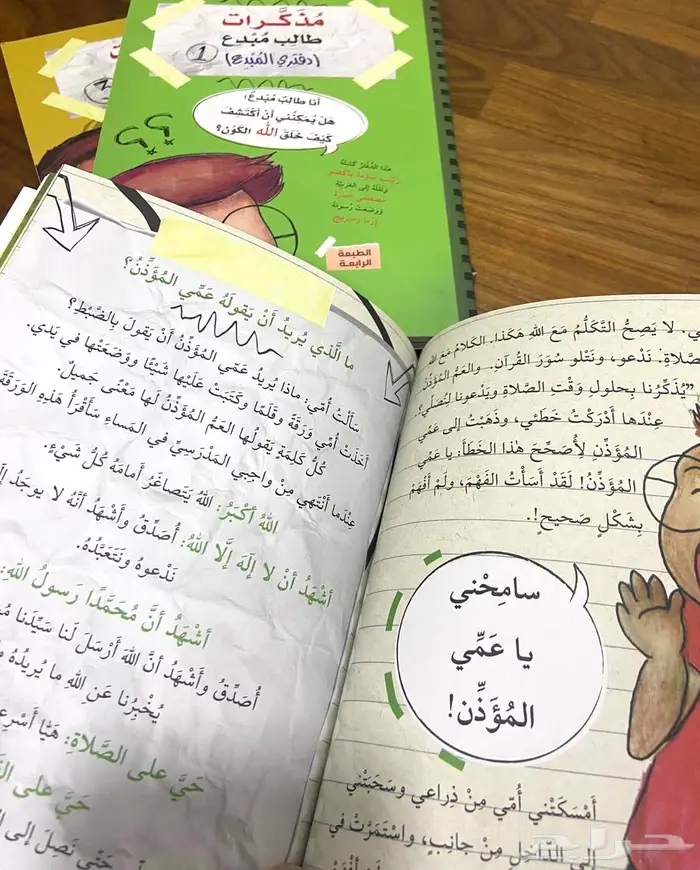 مُذَكَّرات
طالِب مُبْدِع
1
(دفتري المُبْدِع)
أنا طالِبٌ مُبْدِعٌ؛
هَلْ يُمْكِنُني أنْ أكْتَشِفَ
كَيْفَ خَلَقَ اللّٰه الكَوْن؟
هذا الدَّفْتَرُ كَتَبَتْهُ
ونَقَلَهُ إلى العَرَبِيَّة
ووَضَعَتْ رُسومَهُ
الطبعة
الرابعة
3
ما الَّذي يُريدُ أَنْ يَقولَهُ عَمِّي المُؤَذِّنُ؟
سَأَلْتُ أُمِّي: ماذا يُريدُ عَمِّي المُؤَذِّنُ أَنْ يَقولَ بِالضَّبْطِ؟
أَخَذَتْ أُمِّي وَرَقَةً وقَلَمًا وكَتَبَتْ عَلَيْها شَيْئًا ووَضَعَتْها في يَدي.
كُلُّ كَلِمَةٍ يَقولُها العَمُّ المُؤَذِّنُ لَها مَعْنًى جَميلٌ.
عِنْدَما أَنْتَهي مِنْ واجِبي المَدْرَسِيِّ في المَساءِ سَأَقْرَأُ هَذِهِ الوَرَقَةَ
اللهُ أَكْبَرُ: اللهُ يَتَصاغَرُ أَمامَهُ كُلُّ شَيْءٍ.
أَشْهَدُ أَنْ لا إِلَهَ إِلَّا اللهُ: أُصَدِّقُ وأَشْهَدُ أَنَّهُ لا يوجَدُ
نَدْعوهُ ونَتَعَبَّدُهُ.
أَشْهَدُ أَنَّ مُحَمَّدًا رَسولُ اللهِ:
أُصَدِّقُ وأَشْهَدُ أَنَّ اللهَ أَرْسَلَ لَنا سَيِّدَنا
يُخْبِرُنا عَنِ اللهِ ما يُريدُهُ
حَيَّ على الصَّلاةِ: هَيَّا
حَيَّ على
حَتَّى نَصِلَ إِلى
لا يَصِحُّ التَّكَلُّمُ مَعَ اللهِ هَكَذا. الكَلامُ مَعَ اللهِ
نَدْعو، ونَتْلو سُوَرَ القُرآنِ. والعَمُّ المُؤَذِّنُ
يُذَكِّرُنا بِحلولِ وَقْتِ الصَّلاةِ ويَدْعونا لِنُصَلِّي".
عِنْدَها أَدْرَكْتُ خَطَئي، وذَهَبْتُ إِلى عَمِّي
المُؤَذِّنِ لِأُصَحِّحَ هذا الخَطَأَ: يا عَمِّي
المُؤَذِّنُ! لَقَدْ أَسَأْتُ الفَهْمَ، ولَمْ أَفْهَمْ
بِشَكْلٍ صَحيحٍ!.
سامِحْني
يا عَمِّي
المُؤَذِّن!
أَمْسَكَتْني أُمِّي مِنْ ذِراعي وسَحَبَتْني
إِلى الدَّاخِلِ مِنْ جانِبٍ، واسْتَمَرْتُ في
حراج